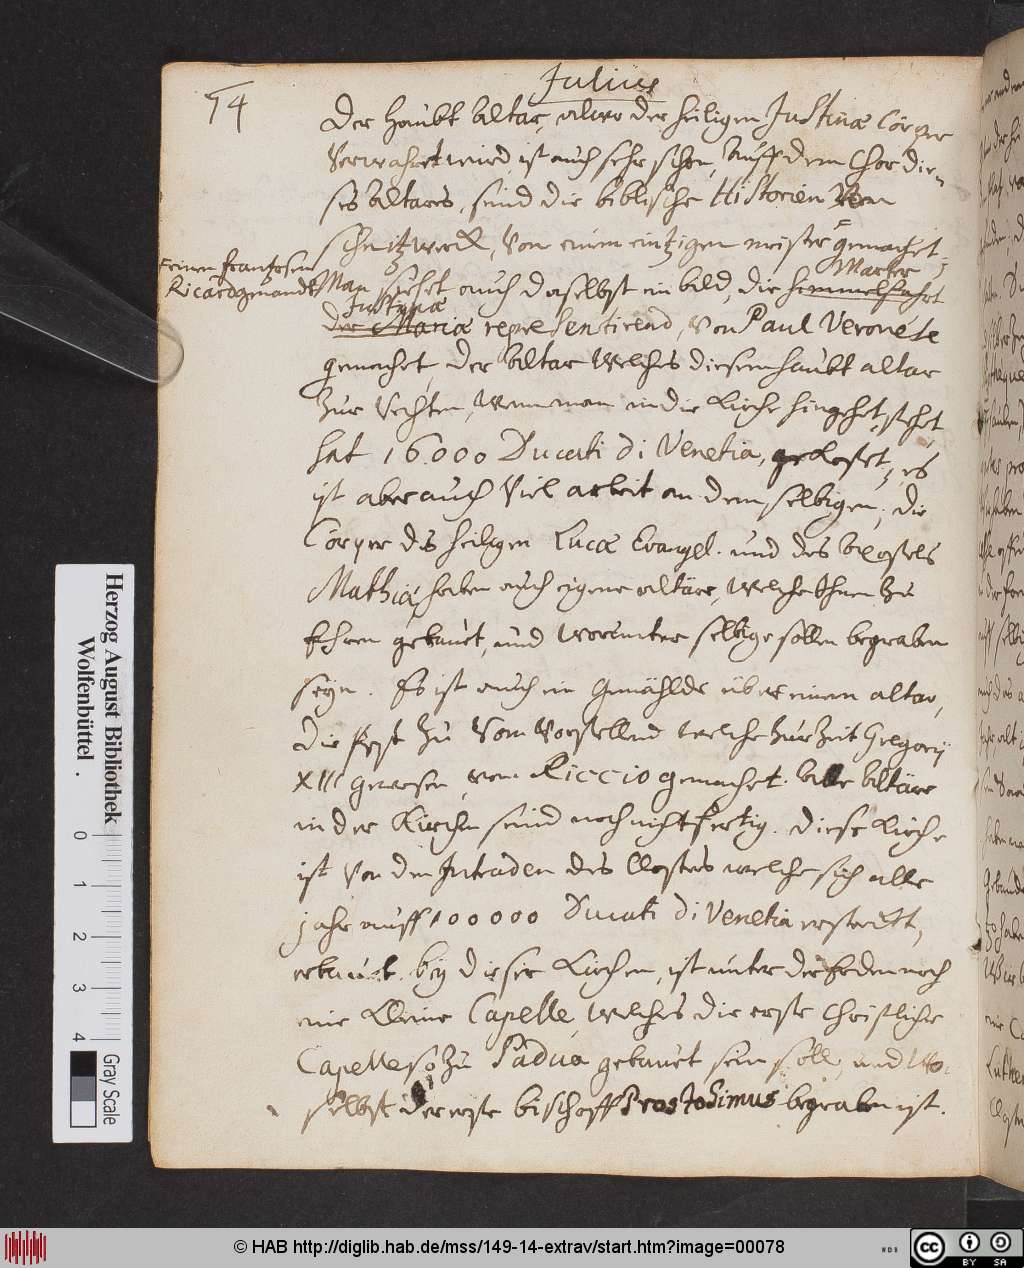 Julius
14
Der Haubt Altar, alwo der heiligen Justinæ Cörper
verwahret wird, ist auch sehr schön, Auff dem Chor die¬
ses Altares, seind die biblische Historien von
schnitzwerck, von einem eintzigen meister gemachet
einen Frantzosen
Ricard genandt
Man sehet auch daselbst ein bild, die himmelfahrt
Marter
Justinæ
der Mariæ repræsentirend, von Paul Veronese
gemachet, der Altar welches diesem haubt altar
zur rechten, wenn man in die Kirche hingehet, stehet
hat 16000 Ducati di Venetia, gekostet, es
ist aber auch viel arbeit an dem selbigen, die
Cörper des heiligen Lucæ Evangel. und des Apostels
Mathiæ, haben auch eigene altäre, welche Ihnen zu
Ehren gebauet, und worunter selbige sollen begraben
seyn. Es ist auch ein Gemählde über einen altar,
die Pest zu Rom vorstellend welche zur Zeit Gregorij
XIII gewesen, von Riccio gemachet. Alle Altäre
in der Kirchen seind noch nicht fertig. Diese Kirche
ist von den Intraden des Closters welche sich alle
jahr auff 100000 Ducati di Venetia erstreckt,
erbauet. bey dieser Kirchen, ist unter der Erden noch
eine kleine Capelle, welches die erste Christliche
Capelle so zu Padua gebauet sein soll, und wo¬
selbst der erste bischoff Prosdosimus begraben ist.
Herzog August Bibliothek
Wolfenbüttel
0 1 2 3 4
Gray Scale
© HAB http://diglib.hab.de/mss/149-14-extrav/start.htm?image=00078
WDB
cc BY SA